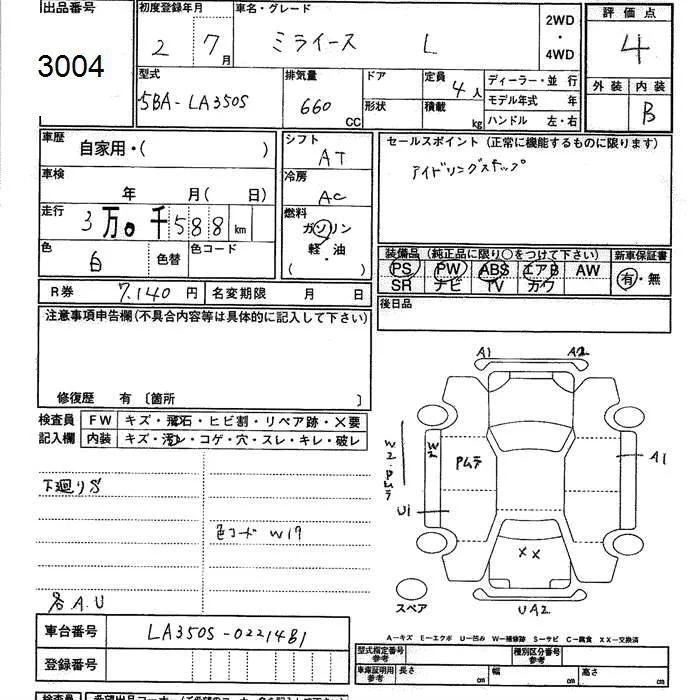 出品番号
3004
初度登録年月
2 7月
車名・グレード
ミライース L
2WD
・
4WD
評価点
4
外装 内装
B
型式
5BA-LA350S
排気量
660 CC
ドア
形状
定員 4人
積載 kg
ディーラー・並行
モデル年式 年
ハンドル 左・右
車歴
自家用・( )
車検
年 月( 日)
走行
3万0千588km
色
白
色替
色コード
シフト
AT
冷房
AC
燃料
ガソリン
軽・油
( )
セールスポイント(正常に機能するものに限ります)
アイドリングストップ
装備品(純正品に限り○をつけて下さい)
PS PW ABS エアB AW
SR ナビ TV カワ
新車保証書
有・無
R券 7,140円
名変期限 月 日
後日品
注意事項申告欄(不具合内容等は具体的に記入して下さい)
修復歴 有 〔箇所 〕
検査員
記入欄
FW キズ・飛石・ヒビ割・リペア跡・×要
内装 キズ・汚レ・コゲ・穴・スレ・キレ・破レ
下廻りS
色コード W19
各A.U
A1 A2
W2・Pムラ
W2
Pムラ
A1
U1
××
スペア
UA2
A-キズ E-エクボ U-凹み W-補修跡 S-サビ C-腐食 XX-交換済
車台番号 LA350S-0221481
登録番号
型式指定番号
参考
種別区分番号
参考
車庫証明用
参考
長さ cm 幅 cm 高さ cm